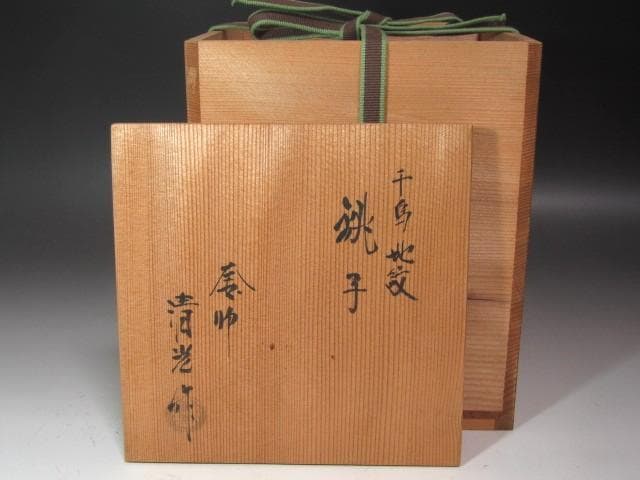 千鳥地紋
銚子
釜師
清光作